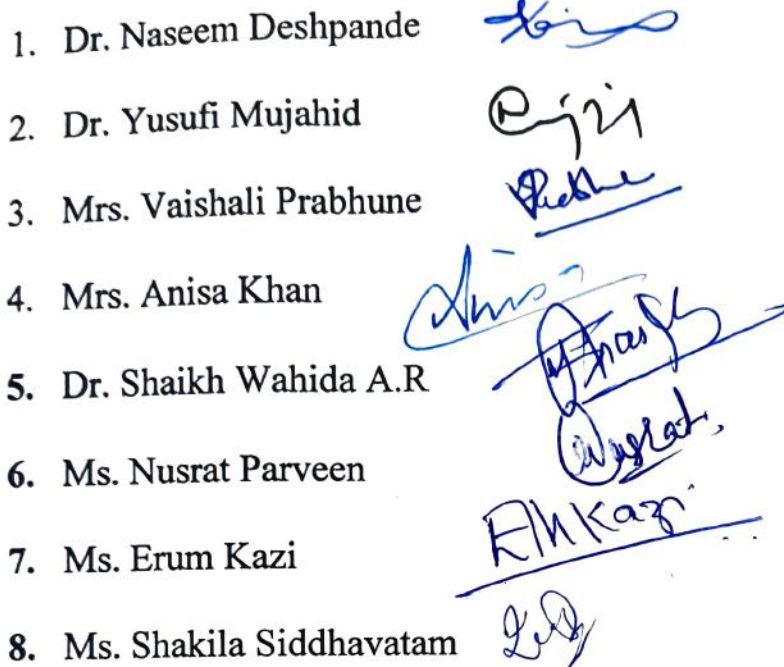 1. Dr. Naseem Deshpande
2. Dr. Yusufi Mujahid
3. Mrs. Vaishali Prabhune
4. Mrs. Anisa Khan
5. Dr. Shaikh Wahida A.R
6. Ms. Nusrat Parveen Nusrat
7. Ms. Erum Kazi EMKazi
8. Ms. Shakila Siddhavatam